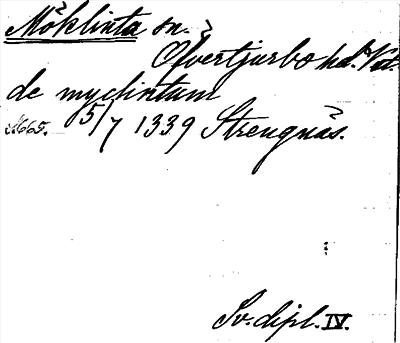 Möklinta sn.
Öfvertjurbo hd. Vstm.
de myclintum
5/7 1339 Strengnäs.
Sv. dipl. IV.